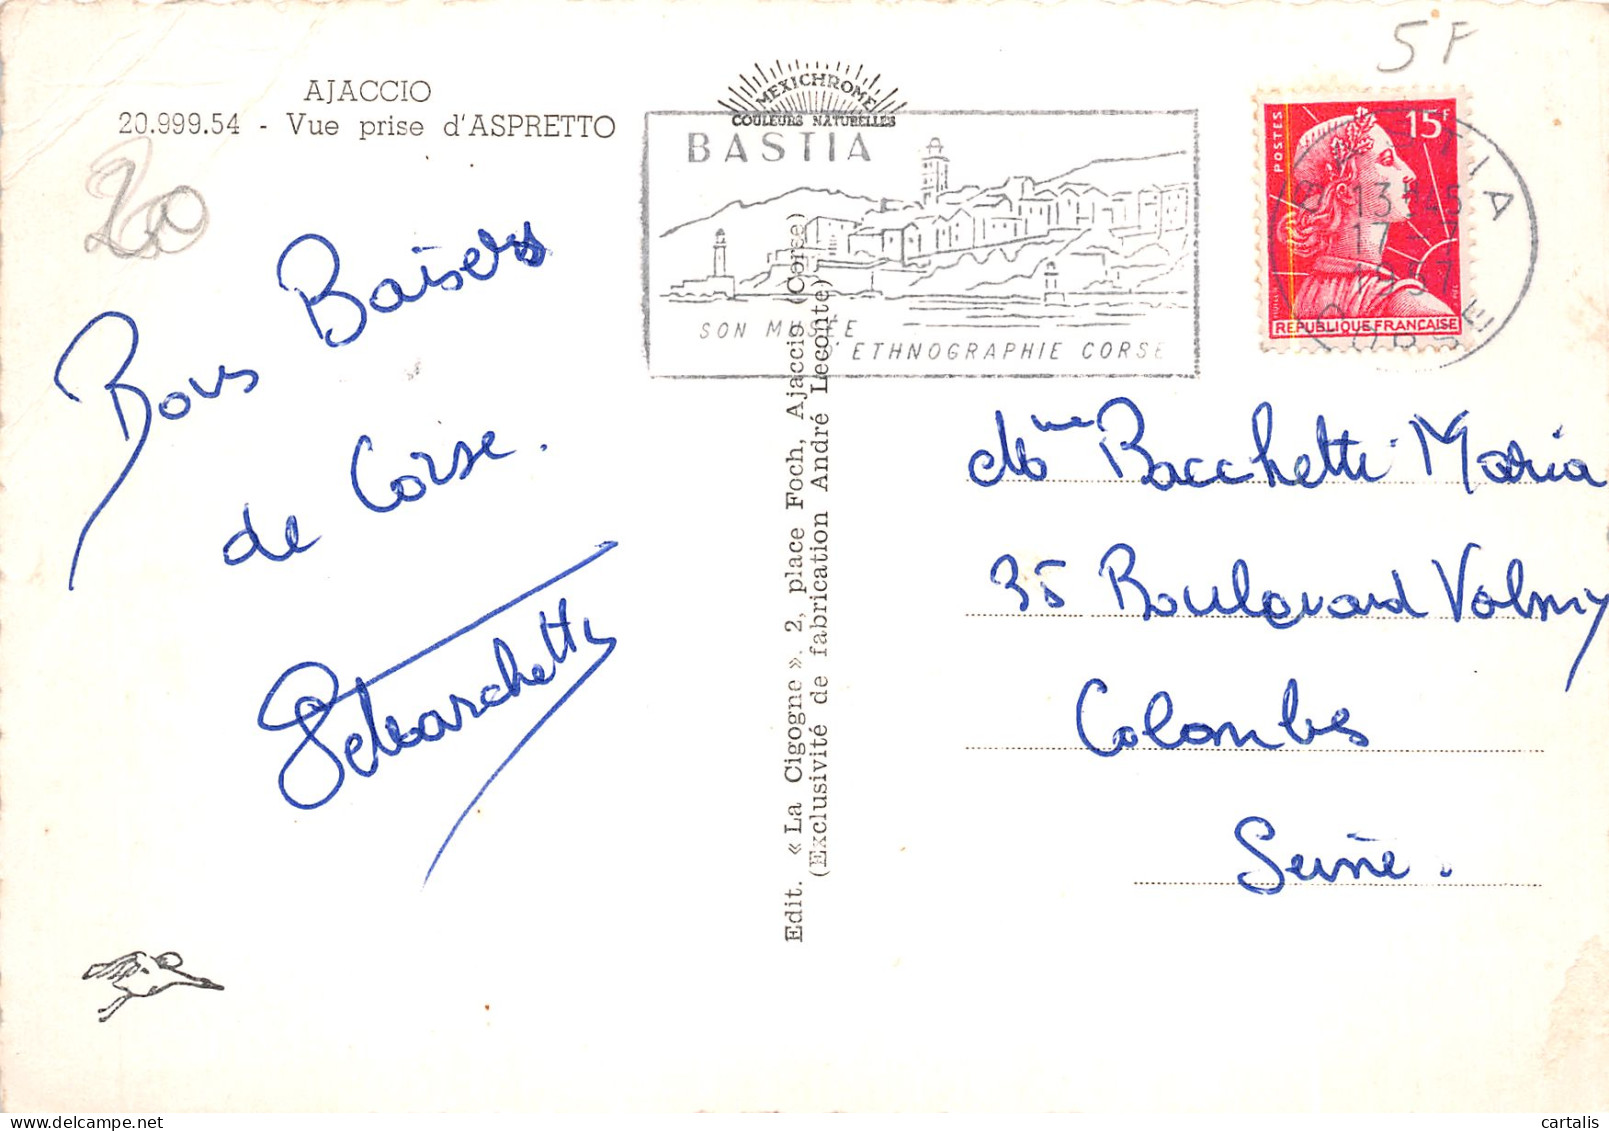 5F
AJACCIO
20.999.54 - Vue prise d'ASPRETTO
20
MEXICHROME
COULEURS NATURELLES
BASTIA
SON MUSÉE
D'ETHNOGRAPHIE CORSE
POSTES
15F
REPUBLIQUE FRANÇAISE
BASTIA
13H45
17-7
1957
CORSE
Bons Baisers
de Corse.
Edit. « La Cigogne ». 2, place Foch, Ajaccio (Corse)
(Exclusivité de fabrication André Leconte)
Mme Bacchetti Maria
35 Boulevard Volney
Colombes
Seine.
cartalis